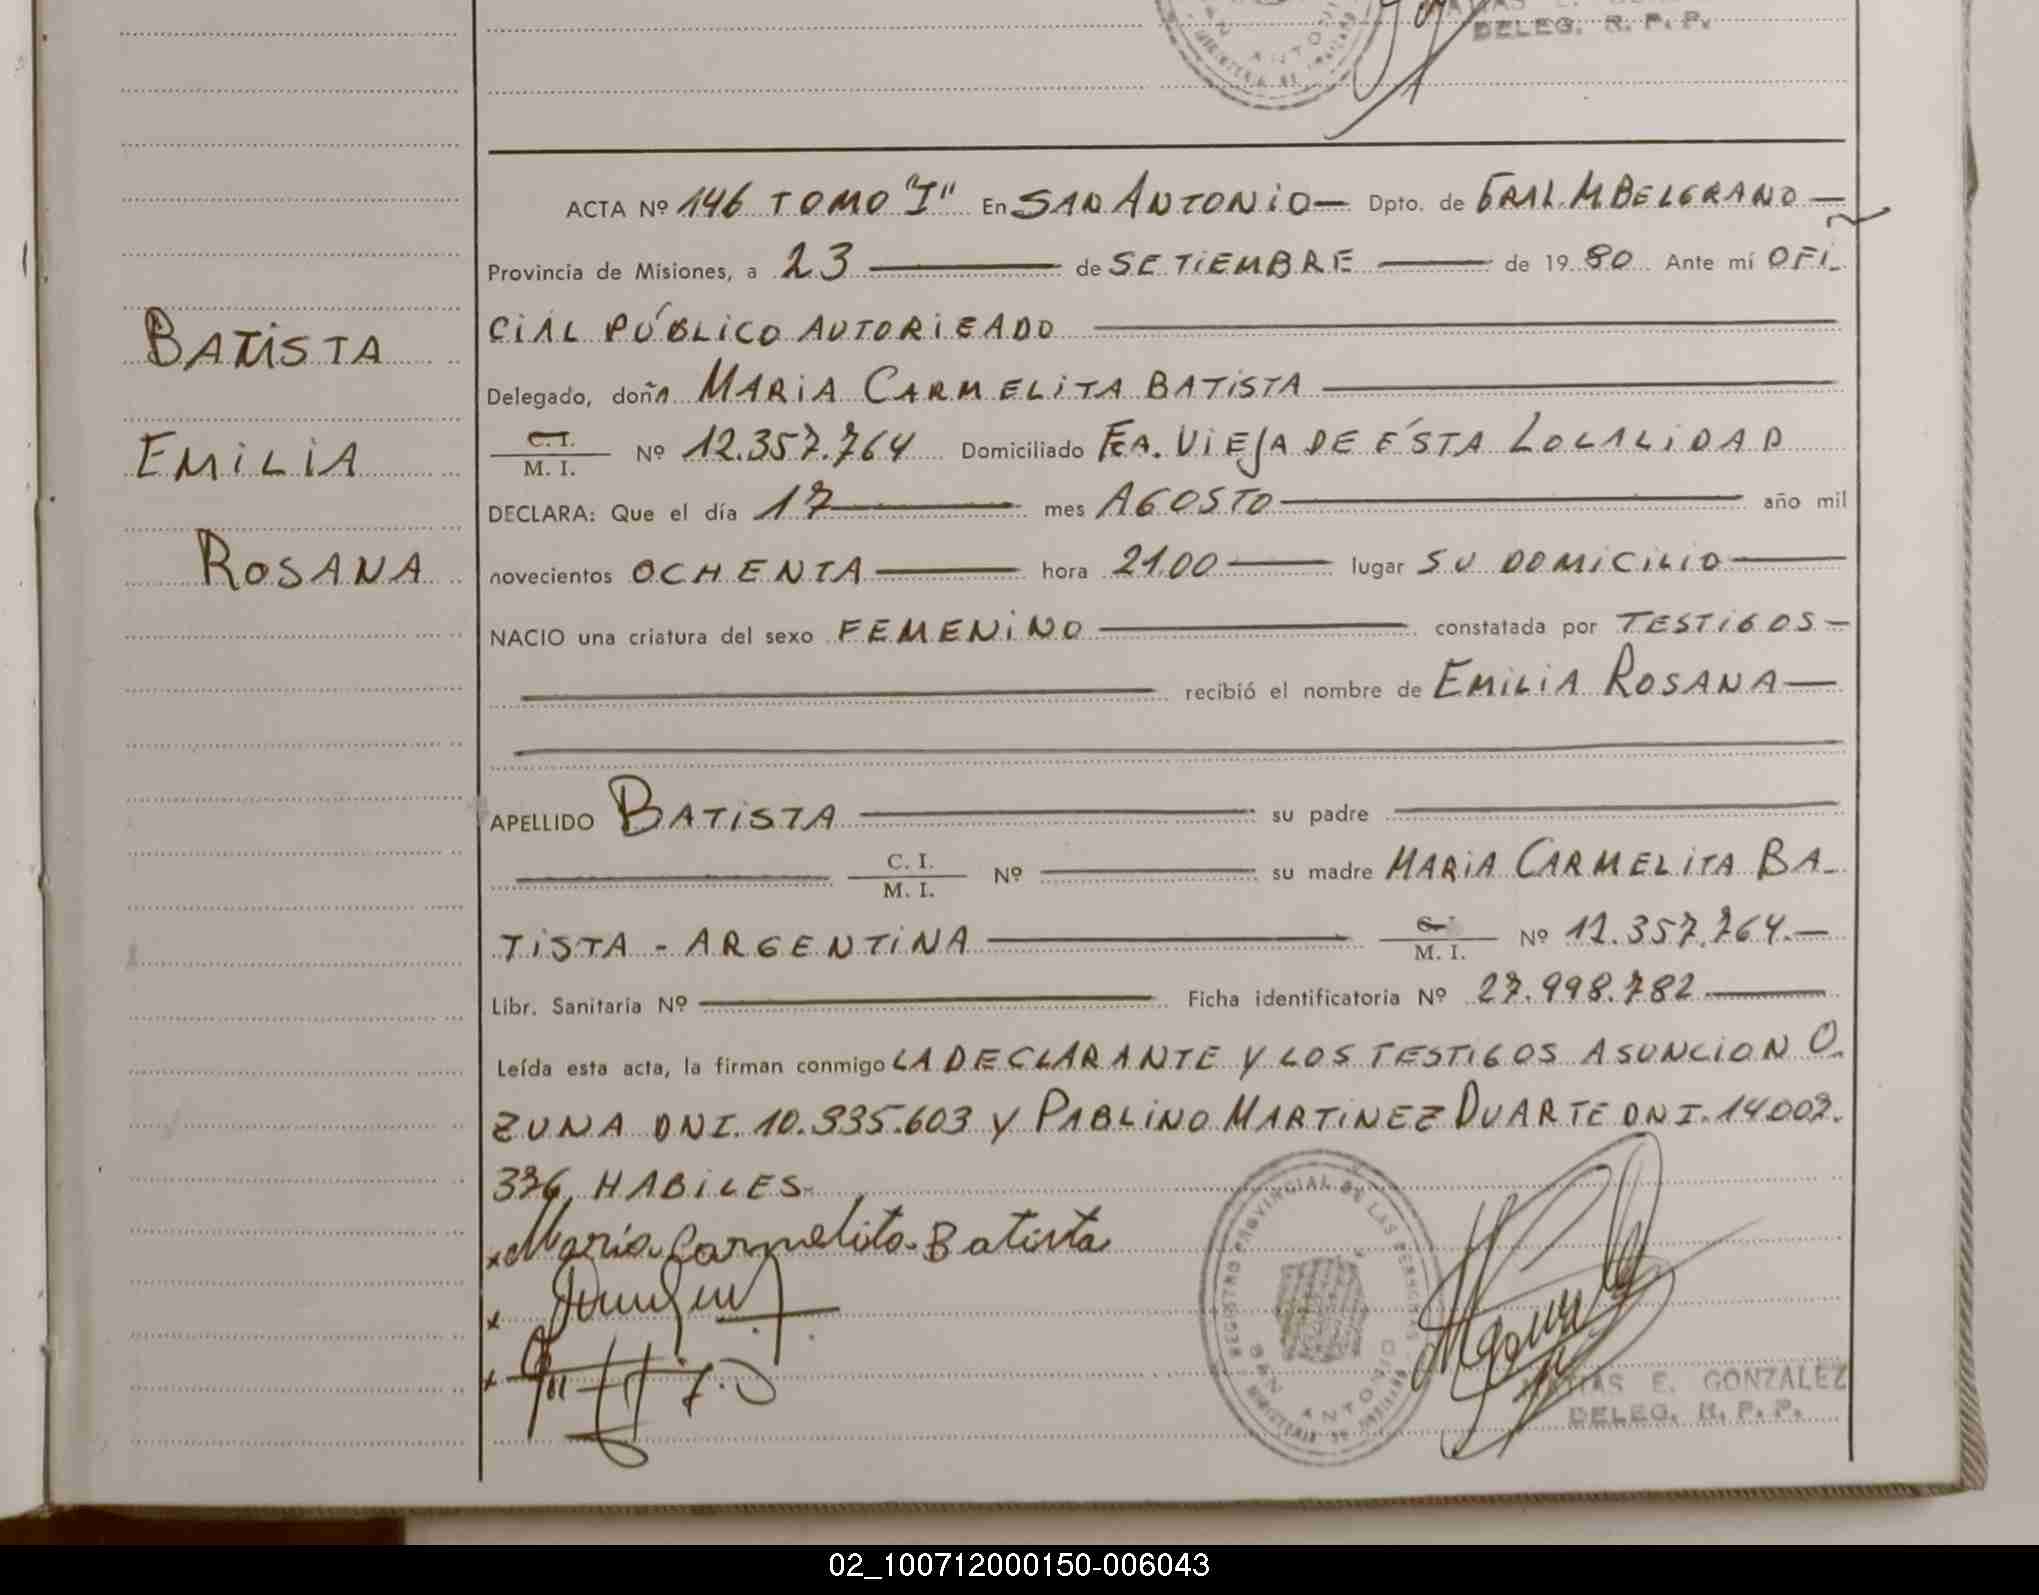 DELEG. R. P. P.
ACTA Nº 146 TOMO "I" En SAN ANTONIO— Dpto. de GRAL. M BELGRANO —
Provincia de Misiones, a 23 — de SETIEMBRE — de 1980 Ante mí OFI-
CIAL PÚBLICO AUTORIZADO —
Delegado, doña MARIA CARMELITA BATISTA —
C. I.
M. I. Nº 12.357.764 Domiciliado FCA. VIEJA DE ÉSTA LOCALIDAD
DECLARA: Que el día 17 — mes AGOSTO — año mil
novecientos OCHENTA — hora 21.00 — lugar SU DOMICILIO —
NACIO una criatura del sexo FEMENINO — constatada por TESTIGOS —
— recibió el nombre de EMILIA ROSANA —
APELLIDO BATISTA — su padre —
— C. I.
M. I. Nº — su madre MARIA CARMELITA BA-
TISTA - ARGENTINA — M. I. Nº 12.357.764.—
Libr. Sanitaria Nº — Ficha identificatoria Nº 27.998.782 —
Leída esta acta, la firman conmigo LA DECLARANTE Y LOS TESTIGOS ASUNCION O-
ZUNA DNI. 10.335.603 Y PABLINO MARTINEZ DUARTE DNI. 14.007.
336, HABILES-
x María Carmelita Batista
x
x
BATISTA
EMILIA
ROSANA
REGISTRO PROVINCIAL DE LAS PERSONAS
SAN ANTONIO
MATIAS E. GONZALEZ
DELEG. R. P. P.
02_100712000150-006043